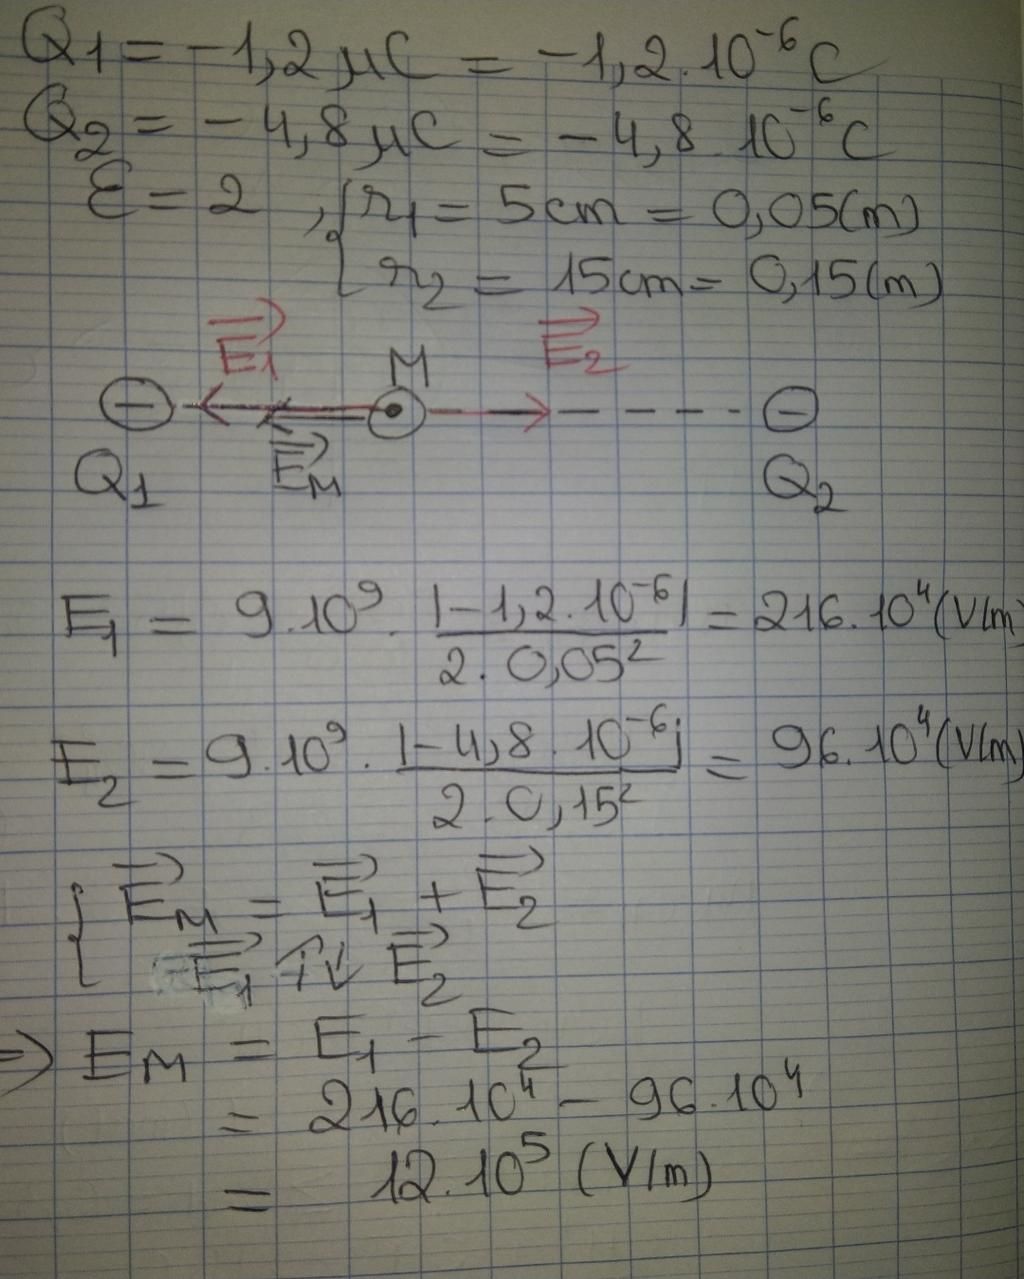 Q1 = -1,2 μC = -1,2.10⁻⁶ C
Q2 = -4,8 μC = -4,8 10⁻⁶ C
Ɛ = 2 , { r1 = 5cm = 0,05(m)
r2 = 15cm = 0,15(m)
E1→ M E2→
EM→
Q1 Q2
E1 = 9.10⁹. |-1,2.10⁻⁶| / 2. 0,05² = 216.10⁴ (V/m)
E2 = 9.10⁹. |-4,8.10⁻⁶| / 2.0,15² = 96.10⁴ (V/m)
{ EM→ = E1→ + E2→
E1→ ↑↓ E2→
=> EM = E1 - E2
= 216.10⁴ - 96.10⁴
= 12.10⁵ (V/m)